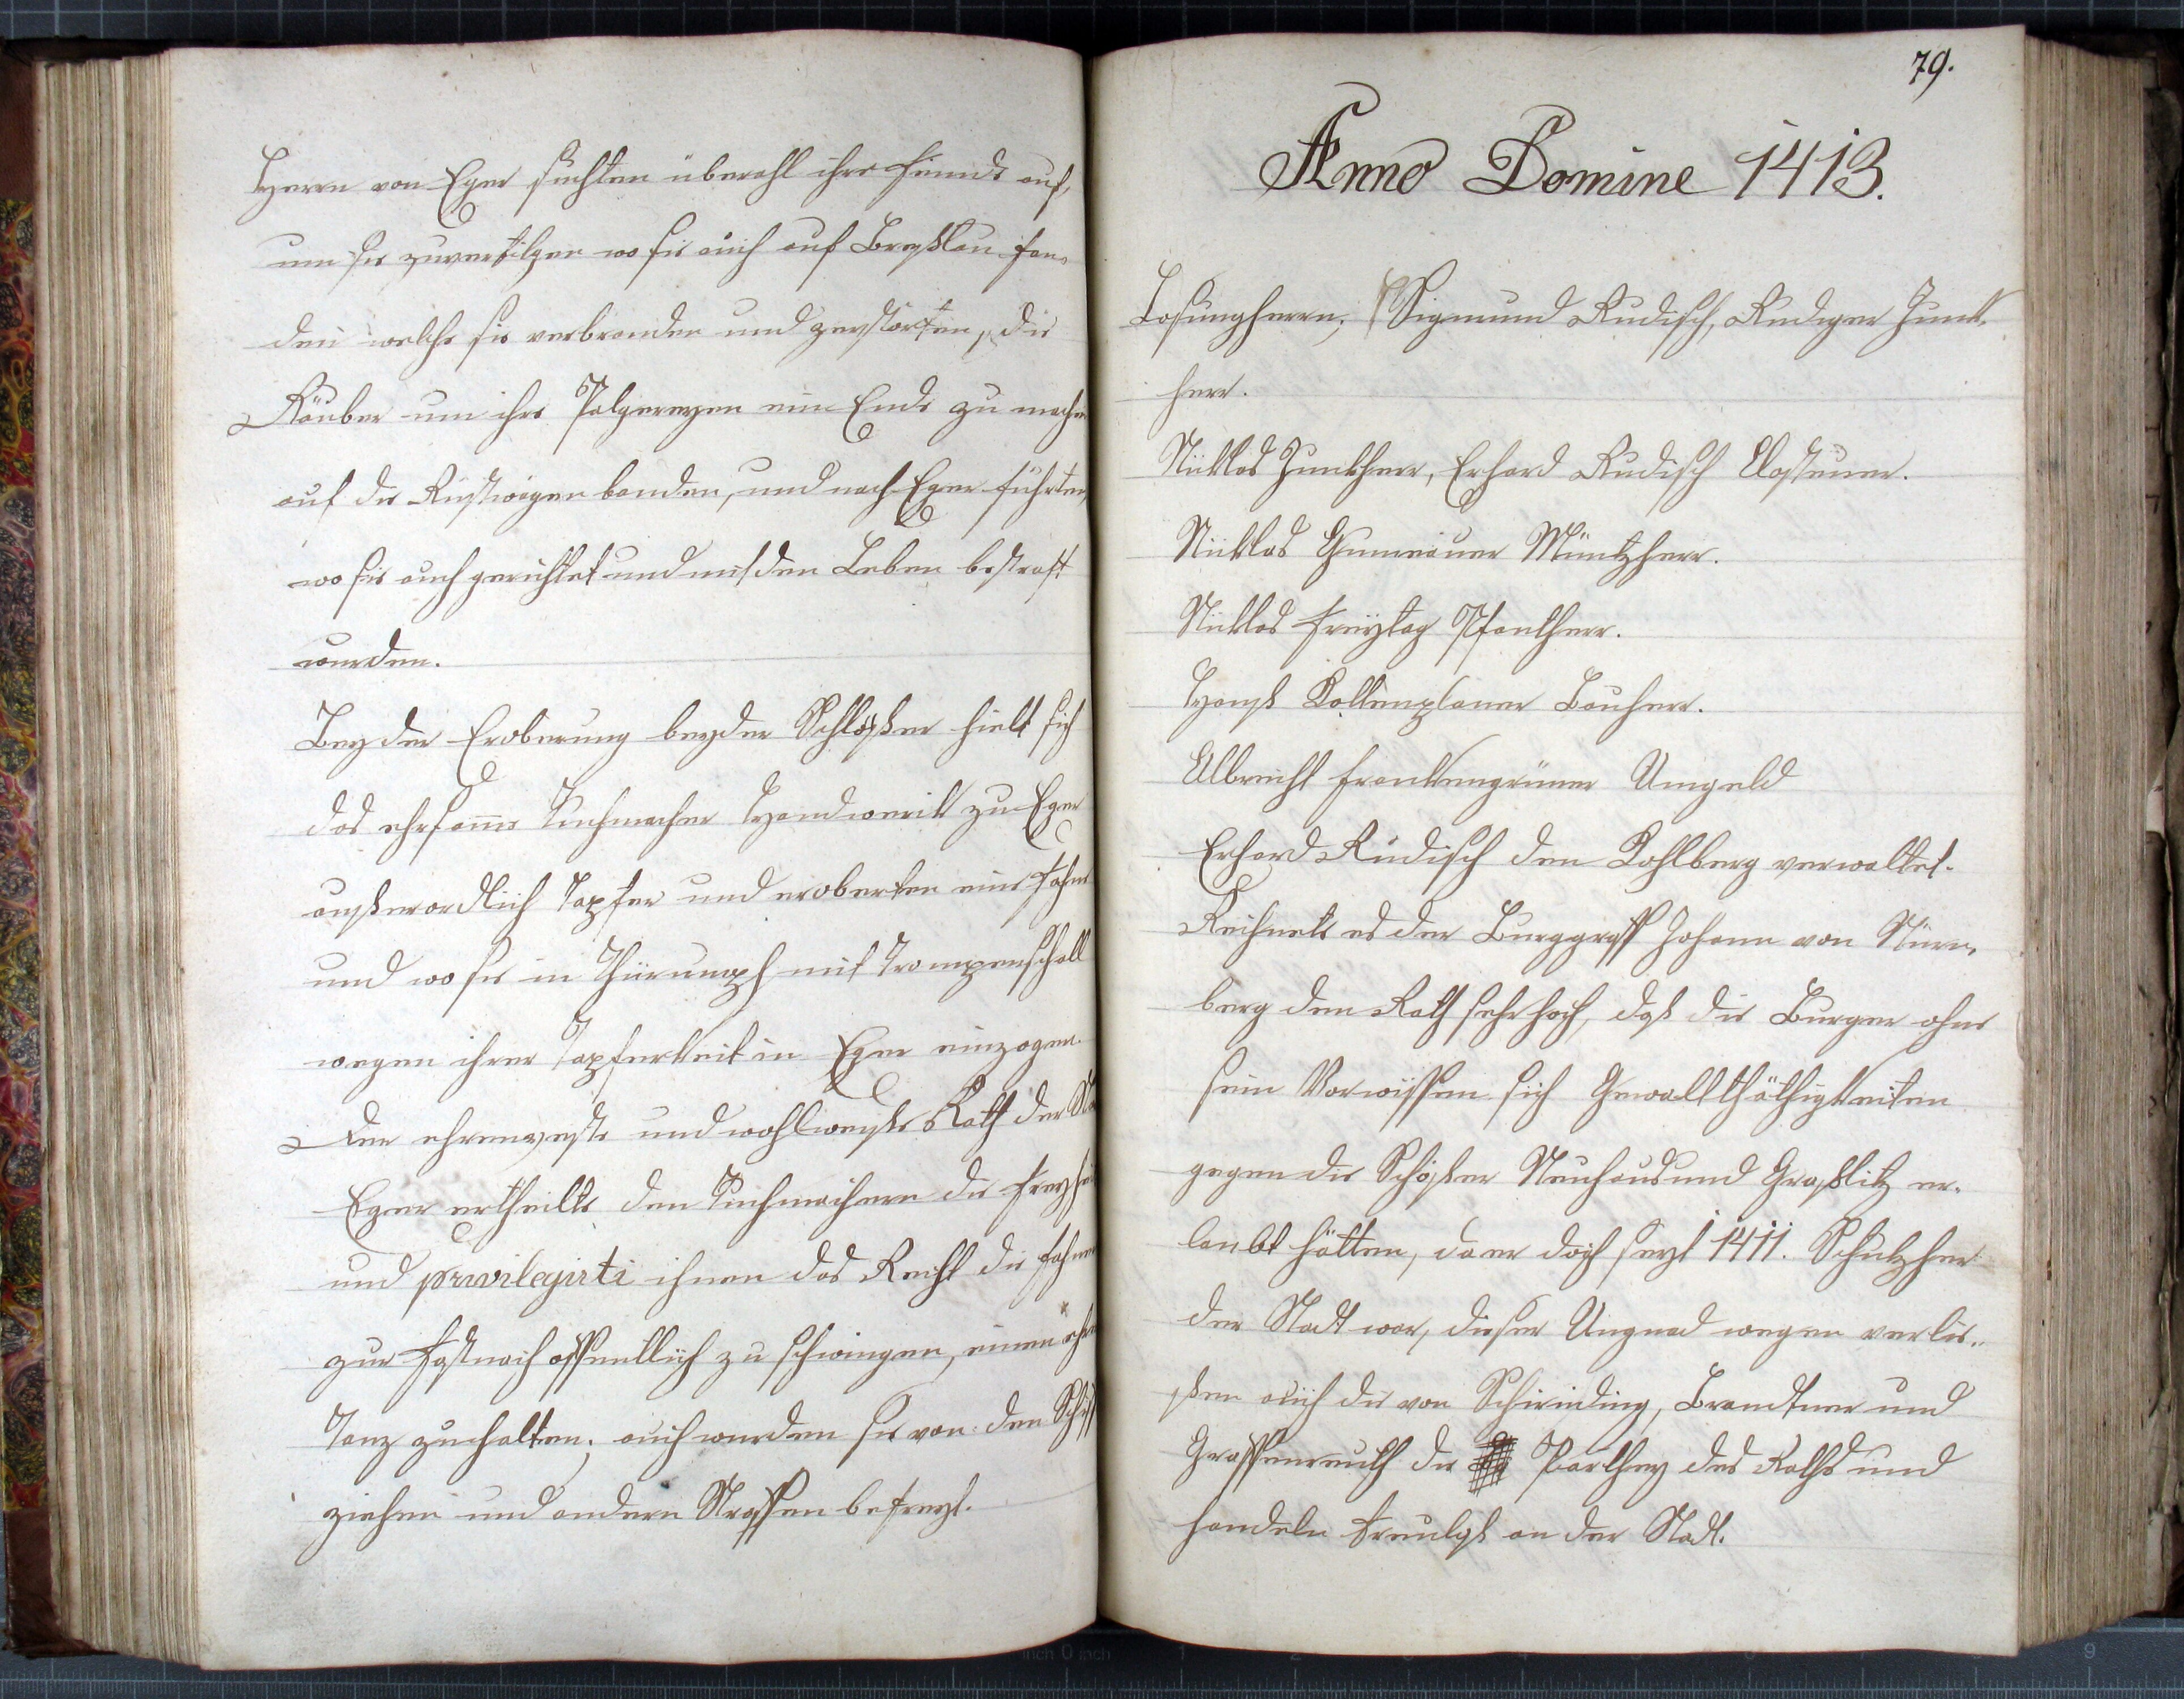 Herrn von Eger suchten überahl ihre Feinde auf,
um sie zuvertilgen wo sie auch auf Breßlau fan-
den welche sie verbranden und zerstörten, die
Räuber um ihre Palgereyen ein Ende zu machen
auf die Rüstwägen banden, und nach Eger führten,
wo sie auch gerichtet und mit den Leben bestraft
wurden.
Bey der Eroberung beyder Schlößer hielt sich
das ehrsame Tuchmacher Handwerk zu Eger
außerordlich Tapfer und eroberten eine Fahne
und wo sie in Thiriumph mit Trompenschall
wegen ihrer Tapferkeit in Eger einzogen.
Der ehrenveste und wohlweyste Rath der
Eger ertheilte den Tuchmachern die Freyheit
und privilegirti ihnen das Recht die Fahnen
zur Fastnach offentlich zu schwingen, einen
Tanz zuhalten; auch wurden sie von den
ziehen und andern Straffen befreyt.
79.
Anno Domine 1413.
Losungherrn; Sigmund Rudisch, Rudiger Junk-
herr.
Nicklas Junkherr, Erhard Rudisch Closteuer.
Nicklas Gumerauer Müntzherr.
Nicklas Freytag Pfantherr.
Hanß Kottenplaner Bauherr.
Albrecht Frankengrüner Umgeld
Erhard Rudisch den Kohlberg verwaltet.
Rechnete es der Burggraff Johann von Nürn-
berg dem Rath sehr hoch, daß die Burger ohne
sein Vorwissen sich Gewaltthäthigkeiten
gegen die Schößer Neuhaus und Graßlitz er-
laubt hätten, da er doch seyt 1411. Schutzherr
der Stadt war, dieser Ungnad wegen verlie-
ßen auch die von Schirnding, Brandtner und
Graffenreuth die Parthey des Raths und
handeln treuloß an der Stadt.